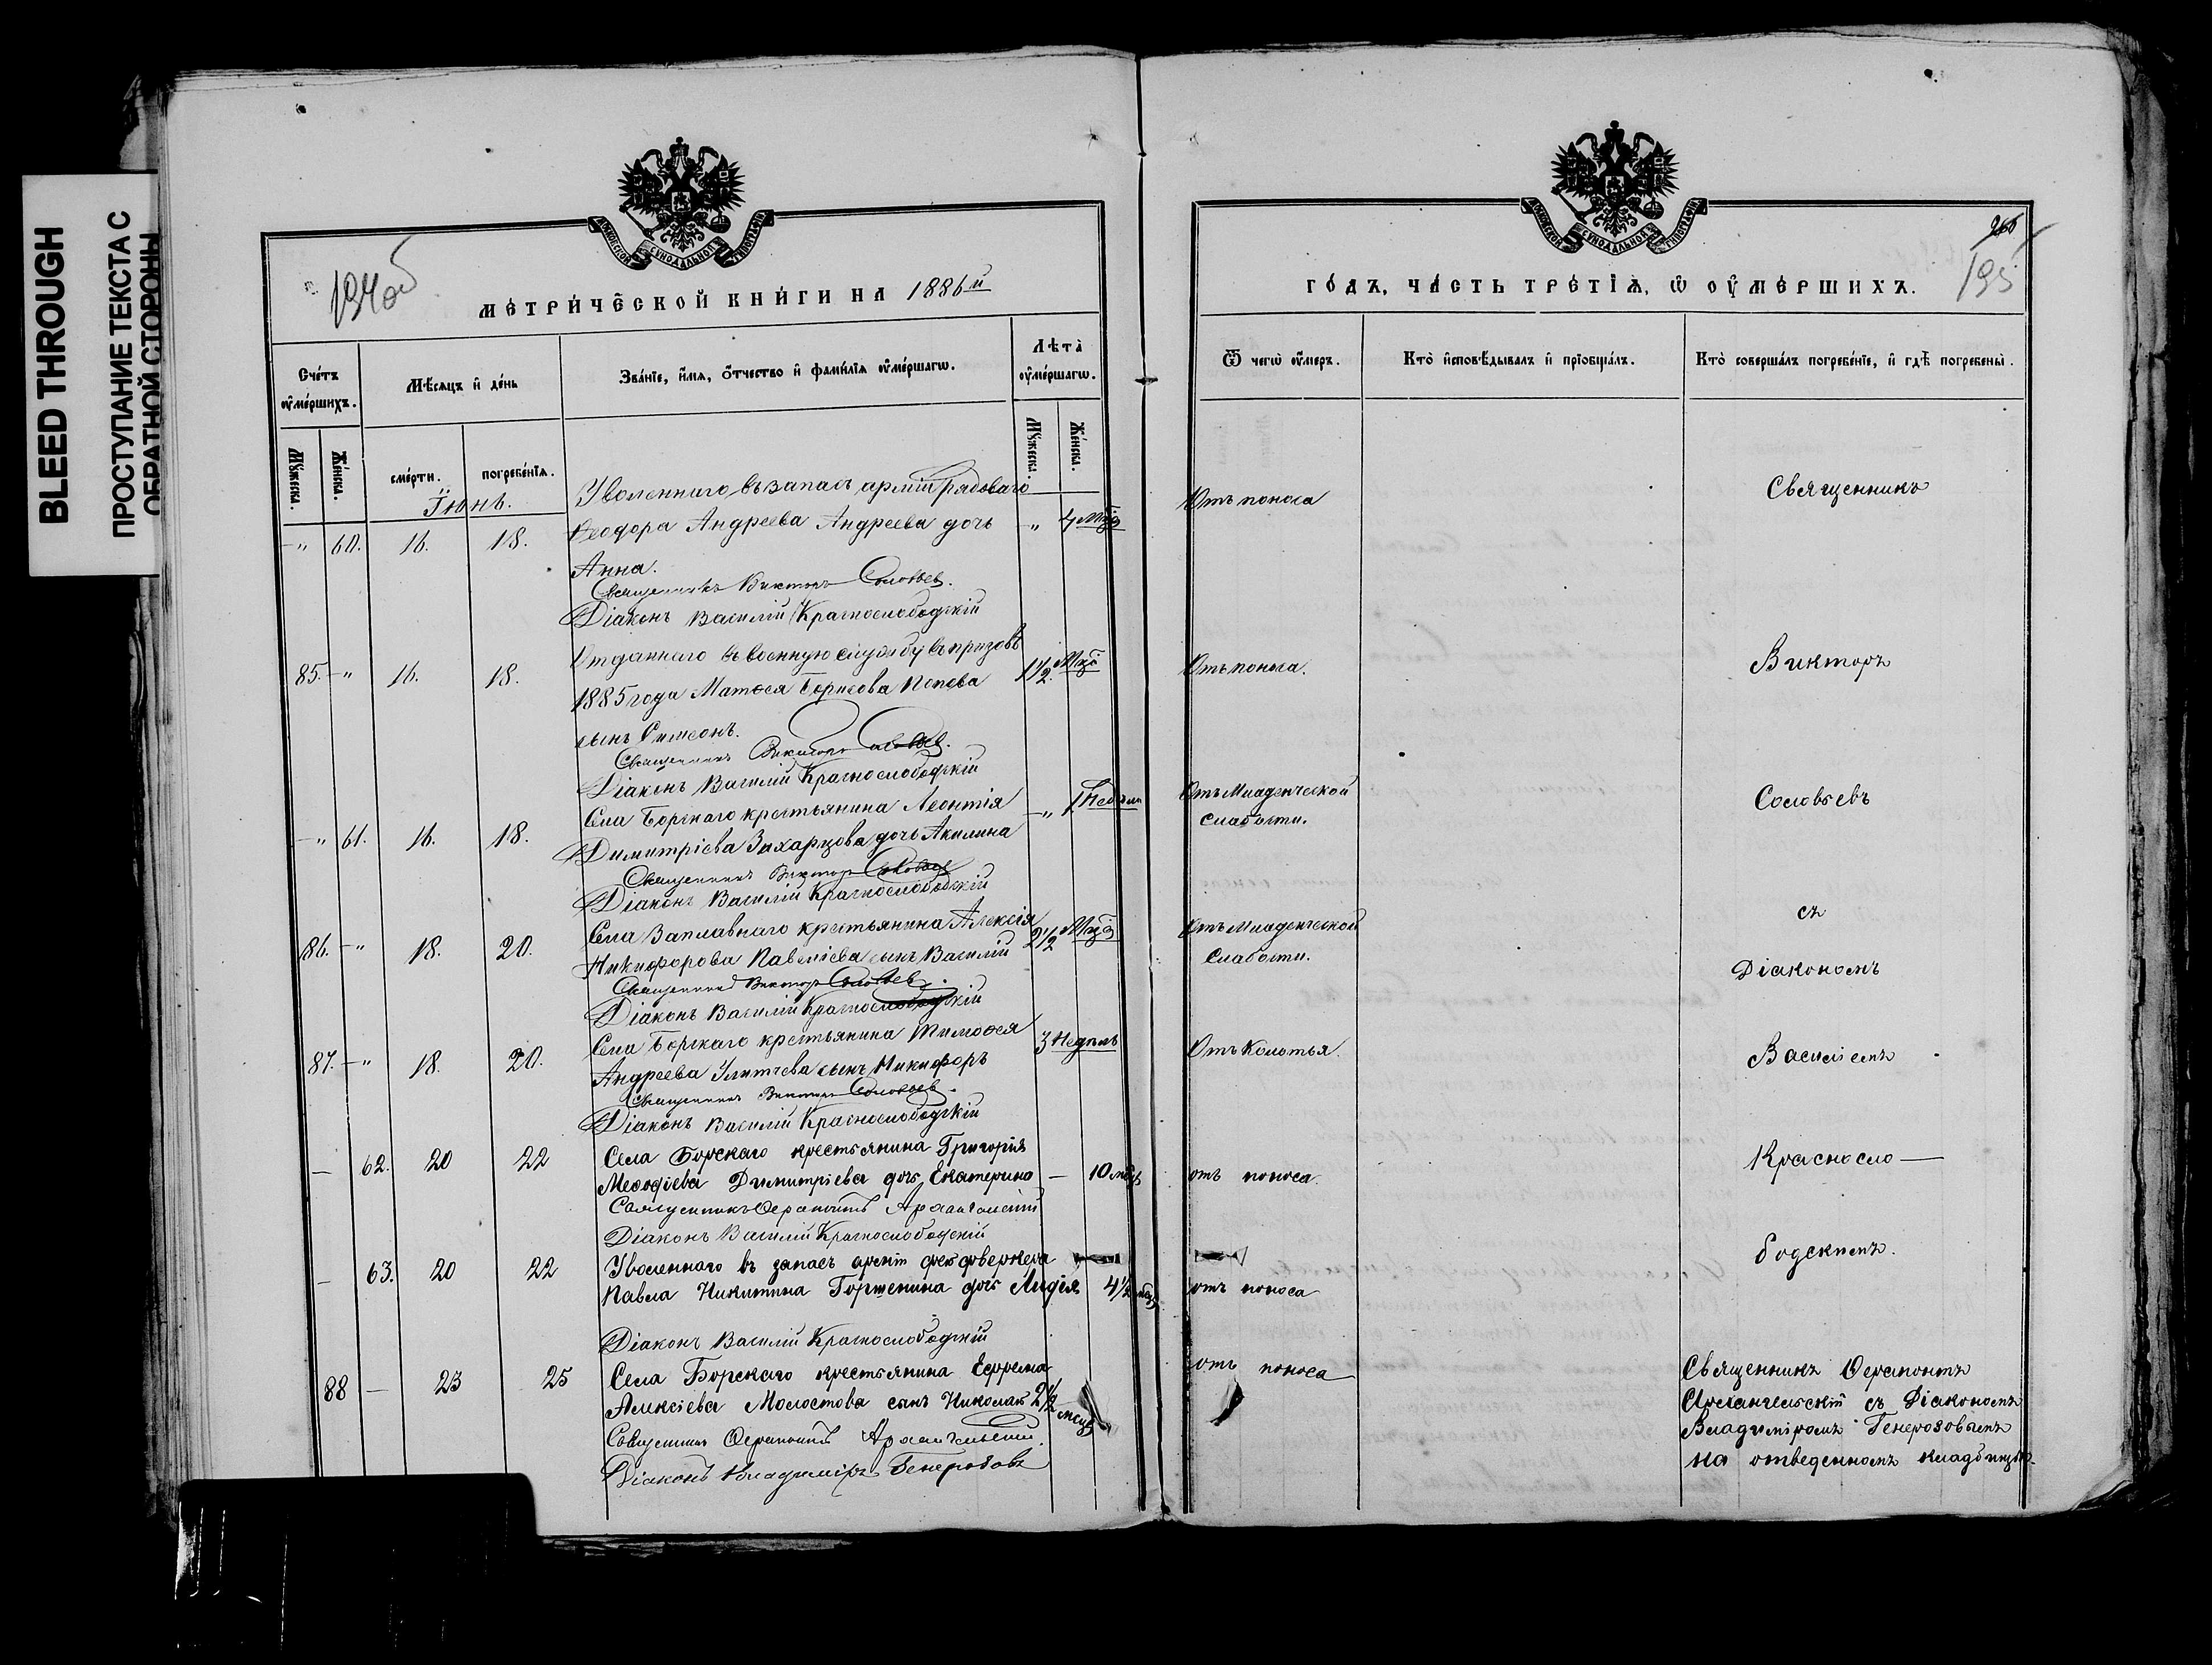 BLEED THROUGH
ПРОСТУПАНИЕ ТЕКСТА С
ОБРАТНОЙ СТОРОНЫ
МОСКОВСКОЙ СѴНОДАЛЬНОЙ ТИПОГРАФІИ
194об
МЕТРИЧЕСКОЙ КНИГИ НА 1886й
Счетъ оумершихъ.
Мѣсяцъ и день
Званіе, имя, отчество и фамилія оумершагѡ.
Лѣта оумершагѡ.
Мужеска.
Женска.
смерти.
погребенія.
Мужеска.
Женска.
Іюнь.
Уволеннаго въ запасъ арміи рядоваго
-„ 60. 16. 18. Ѳеодора Андреева Андреева дочь -„ 4 мѣс
Анна.
Священникъ Викторъ Соловьев.
Діаконъ Василій Краснослободскій
Отданнаго въ военную службу въ призовъ
85. -„ 16. 18. 1885 года Матѳея Борисова Попова 1½ мѣс
сынъ Симеонъ.
Священникъ Викторъ Соловьев.
Діаконъ Василій Краснослободскій
Села Борскаго крестьянина Леонтія
-„ 61. 16. 18. Димитріева Захарцова дочь Акилина -„ 1 Недѣли
Священникъ Викторъ Соловьев
Діаконъ Василій Краснослободскій
Села Заплавнаго крестьянина Алексія
86. -„ 18. 20. Никифорова сынъ Василій 2½ мѣс
Священникъ Викторъ Соловьев.
Діаконъ Василій Краснослободскій
Села Борскаго крестьянина Тимоѳея
87. -„ 18. 20. Андреева сынъ Никифоръ 3 Недѣль
Священникъ Викторъ Соловьев.
Діаконъ Василій Краснослободскій
Села Борскаго крестьянина Григорія
— 62. 20 22 Меѳодіева Димитріева дочь Екатерина — 10 мѣс
Священникъ Ѳерапонтъ Архангельскій
Діаконъ Василій Краснослободскій
Уволеннаго въ запасъ арміи
— 63. 20 22 Павла Никитина Горшенина дочь Лидія 4½ мѣс
Діаконъ Василій Краснослободскій
Села Борскаго крестьянина Ефрема
88 — 23 25 Алексіева Молостова сынъ Николай 2½ мѣсц
Священникъ Ѳерапонтъ Архангельскій.
Діаконъ Владиміръ Генерозовъ
МОСКОВСКОЙ СѴНОДАЛЬНОЙ ТИПОГРАФІИ
195
ГОДЪ, ЧАСТЬ ТРЕТІЯ, Ѡ ОУМЕРШИХЪ.
Ѿ чегѡ оумеръ.
Кто исповѣдывалъ и пріобщалъ.
Кто совершалъ погребеніе, и гдѣ погребены.
Отъ поноса
Священникъ
Отъ поноса.
Викторъ
Отъ Младенческой
слабости.
Соловьевъ
Отъ Младенческой
слабости.
съ
Діакономъ
Отъ Колотья.
Василіемъ
отъ поноса.
Краснсло—
бодскимъ.
отъ поноса
отъ поноса
Священникъ Ѳерапонтъ
Архангельскій съ Діакономъ
Владиміромъ Генерозовымъ
на отведенномъ кладбищѣ.